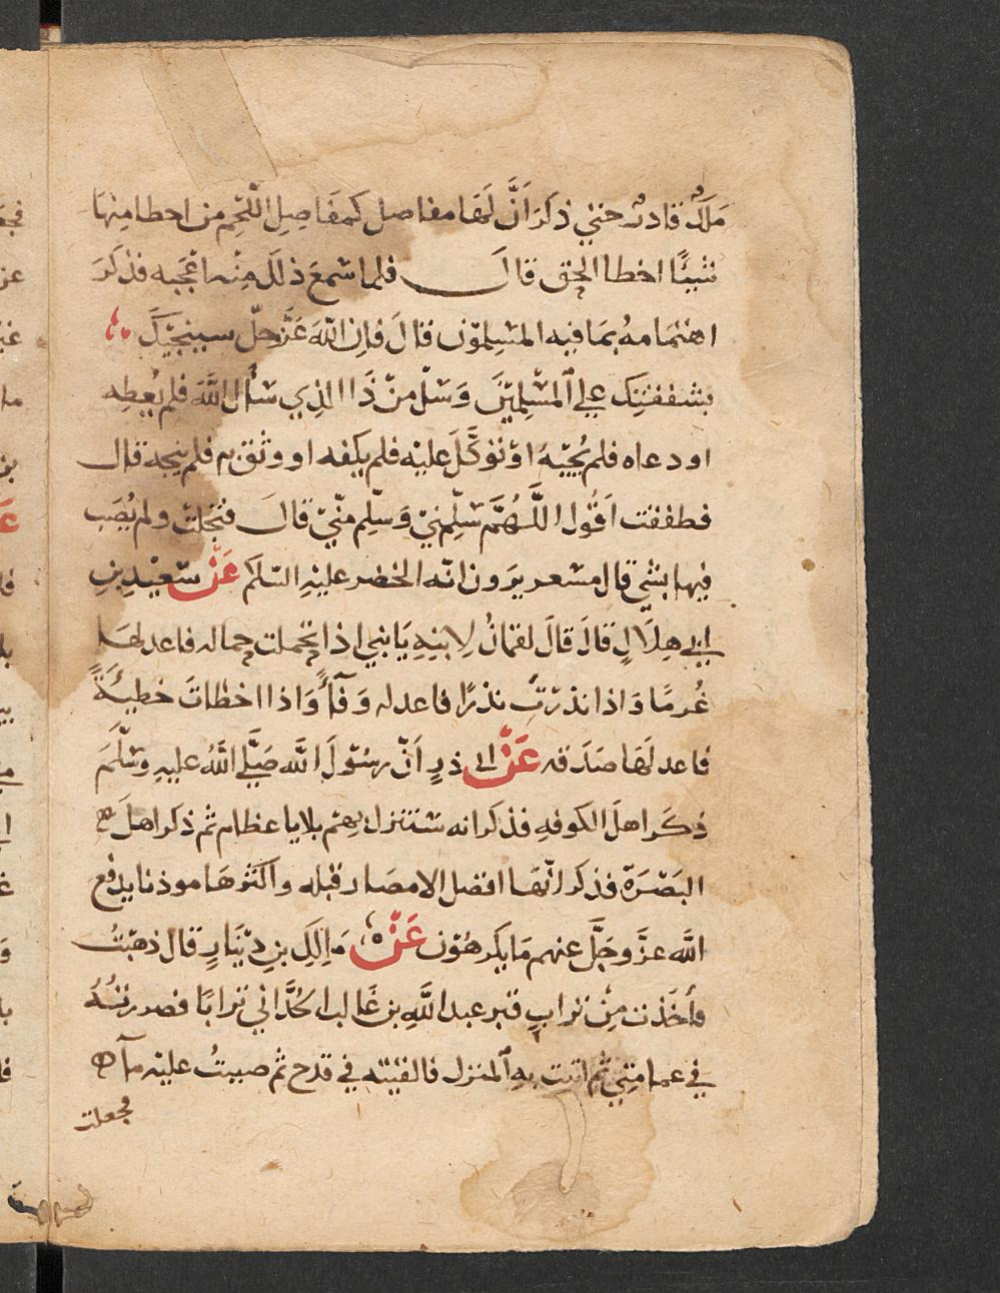 ملكٌ قادرٌ حتي ذكرَ اَنَّ لَهَا مفاصل كمفَاصِلِ اللَّحِمِ من اخطا مِنها
شيئًا اخطا الحق قالَ فلما سَمعَ ذلكَ مِنْه اعْجبه فذكرَ
اهتمامهُ بمَا فيه المسْلِموْن قالَ فإن اللهَ عَزَّوجلّ سينجّيكَ
بشففتِك علي المسْلِميْنَ وَسَلْ منْ ذَا الذِي سَأل اللهَ فلم يُعطِه
او دعاه فلم يُجِبْهُ اوْ توَكَّلَ عليْه فلم يكفه او وثقَ به فلم ينجه قال
فطفقت اَقُول اللَّهُمَّ سَلّمنيْ وَسَلِّم منّيْ قالَ فتجلت ولم يُصَب
فيها بشيٍ قال مسْعر يرَون انّه الخضر عليْهِ السّلام عَنْ سَعيْدِ بنِ
ابي هِلَالٍ قالَ قالَ لقمانُ لِابنِهِ يَا بني اذا تحملت حِماله فاعد لهَا
غُرمًا وَاذا نذرْتَ نذرًا فاعد له وَفآءً وَاذا اخطاتَ خطيئَةً
فاعد لَهَا صَدَقه عَنْ ابي ذرٍ اَنّ رسُوْلَ الله صَلَّي اللهُ عليهِ وسَلَّمَ
ذكرَ اهلَ الكوفهِ فذكرَ انه سَتنزل بهِم بلايا عظام ثم ذكر اهلَ
البَصْرَةِ فذكر انّهَا افضل الامصَار قبله واكثرهَا موذنا يدفع
الله عزَّ وجَلَّ عنهم مَا يكرهُوْن عَنْ مَالِكِ بنِ دِيْنَارٍ قال ذهبْتُ
فأخَذت مِن ترابٍ قبر عبد اللهِ بن غَالب الحُدَّاني ترابًا فصررتهُ
في عمامتِي ثم اتيت بهِ المنزل فالقيْته في قدح ثم صببتُ عليْه مآء
فجعلت